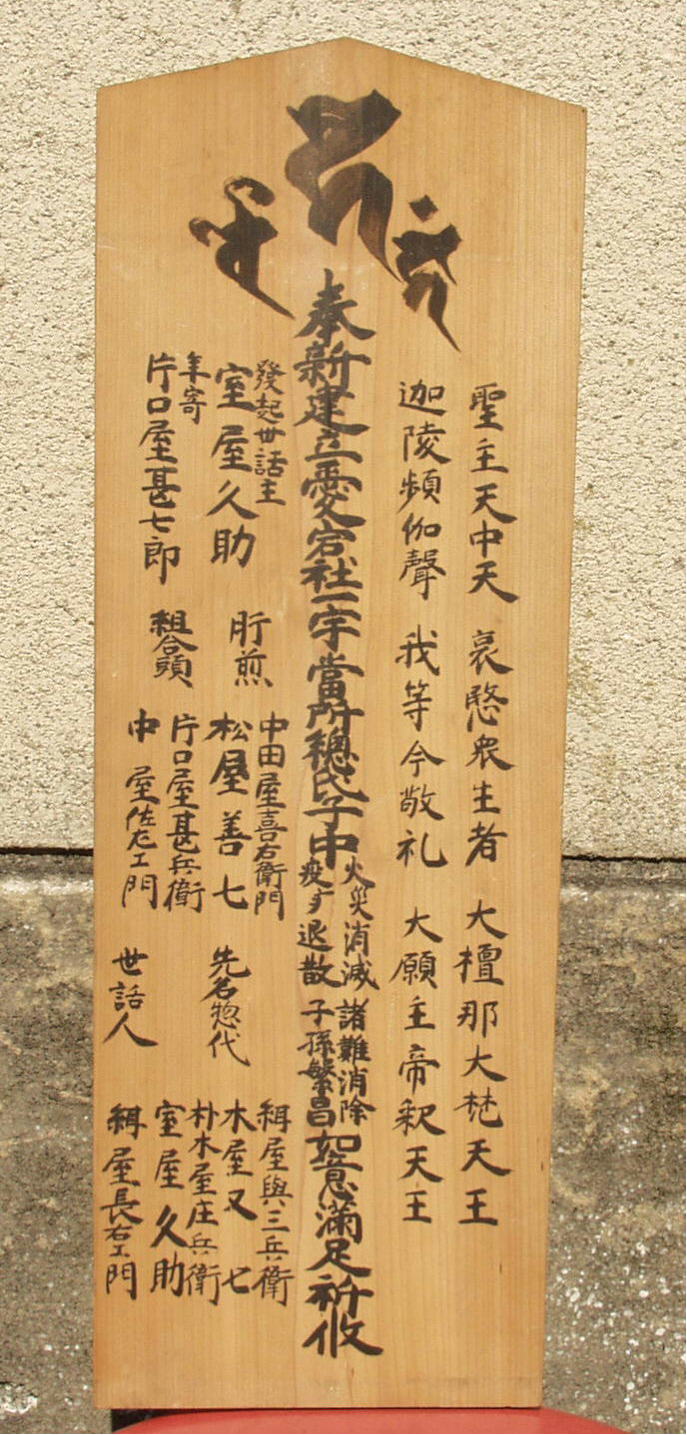 聖主天中天　哀愍衆生者　大檀那大梵天王
迦陵頻伽聲　我等今敬礼　大願主帝釈天王
奉新建立愛宕社一宇當所總氏子中
火災消滅　諸難消除
疫疒退散　子孫繁昌
如意滿足祈攸
發起世話主
室屋久助
年寄
片口屋甚七郎
肝煎
中田屋喜右衛門
松屋善七
組合頭
片口屋甚兵衛
中屋佐左エ門
先名惣代
䋙屋與三兵衛
木屋又七
朴木屋庄兵衛
世話人
室屋久助
䋙屋長右エ門